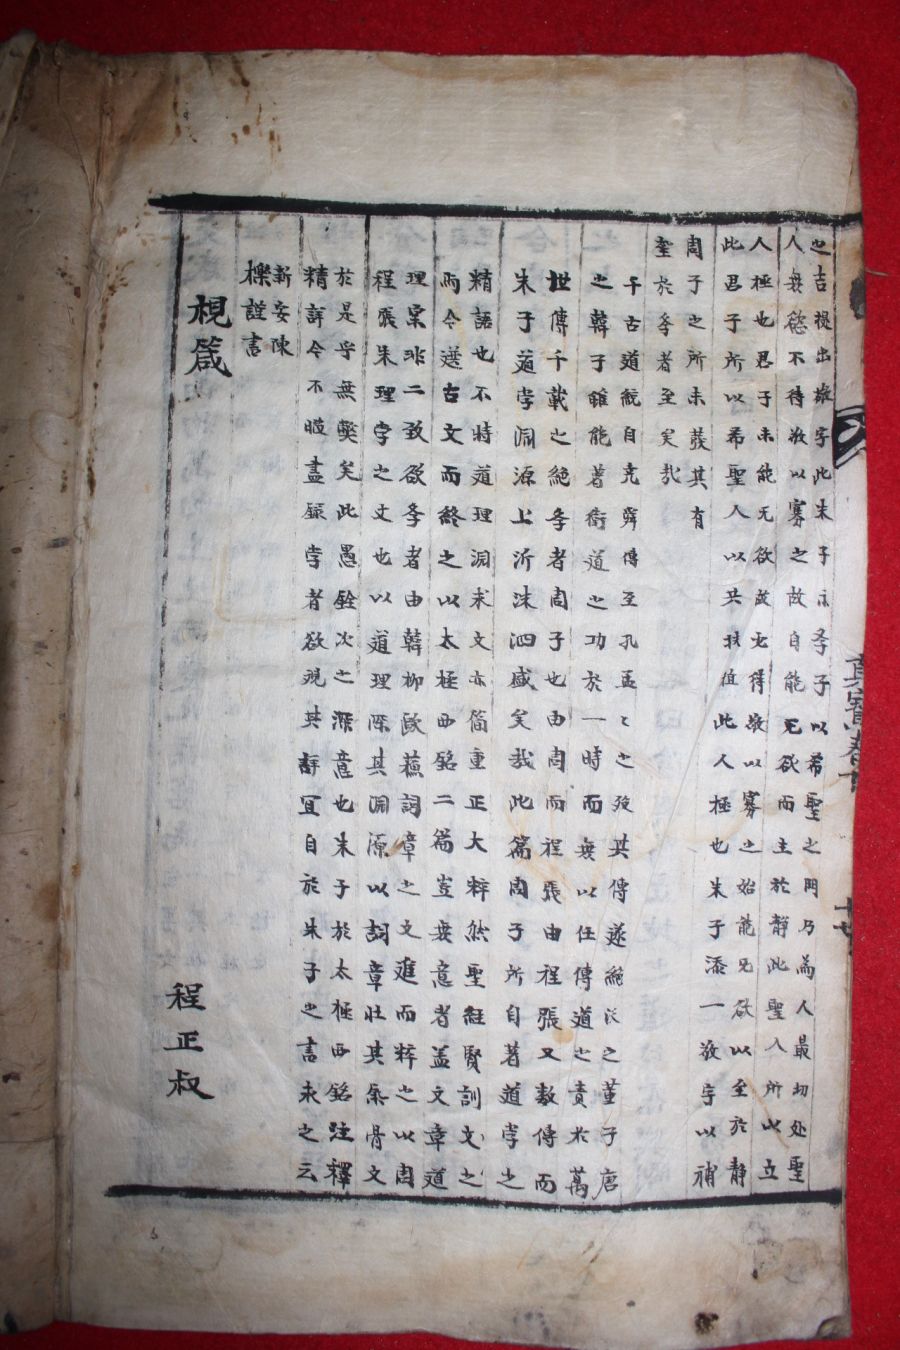 之吉提出敬字此朱子示孝子以希聖之門乃爲人最切处聖
人無慾不待敬以寡之故自能无欲而主於靜此聖人所以立
人極也君子未能无欲故必得敬以寡之始能无欲以至於靜
此君子所以希聖人以共扶植此人極也朱子添一敬字以補
周子之所未發其有
奎於孝者至矣哉
千古道統自克舜傳至孔孟〻之歿其傳遂絕汉之董子唐
之韓子雖能著衛道之功於一時而無以任傳道之責於萬
世傳千載之絕孝者周子也由周而程張由程張又数傳而
朱子道孛淵源上泝洙泗盛矣哉此篇周子所自著道孛之
精語也不特道理淵永文亦簡重正大粹然聖経賢訓文之
而今選古文而終之以太極西銘二篇豈無意者盖文章道
理宲非二致欲孝者由韓柳歐蘇詞章之文進而粹之以周
程張朱理孛之文也以道理深其淵源以詞章壯其氣骨文
於是乎無獘矣此愚詮次之深意也朱子於太極西銘註釋
精詳今不暇盡録孛者欲覌其詳冝自於朱子之書求之云
新安陳
櫟謹書
視箴
程正叔
真宝卷十
十七